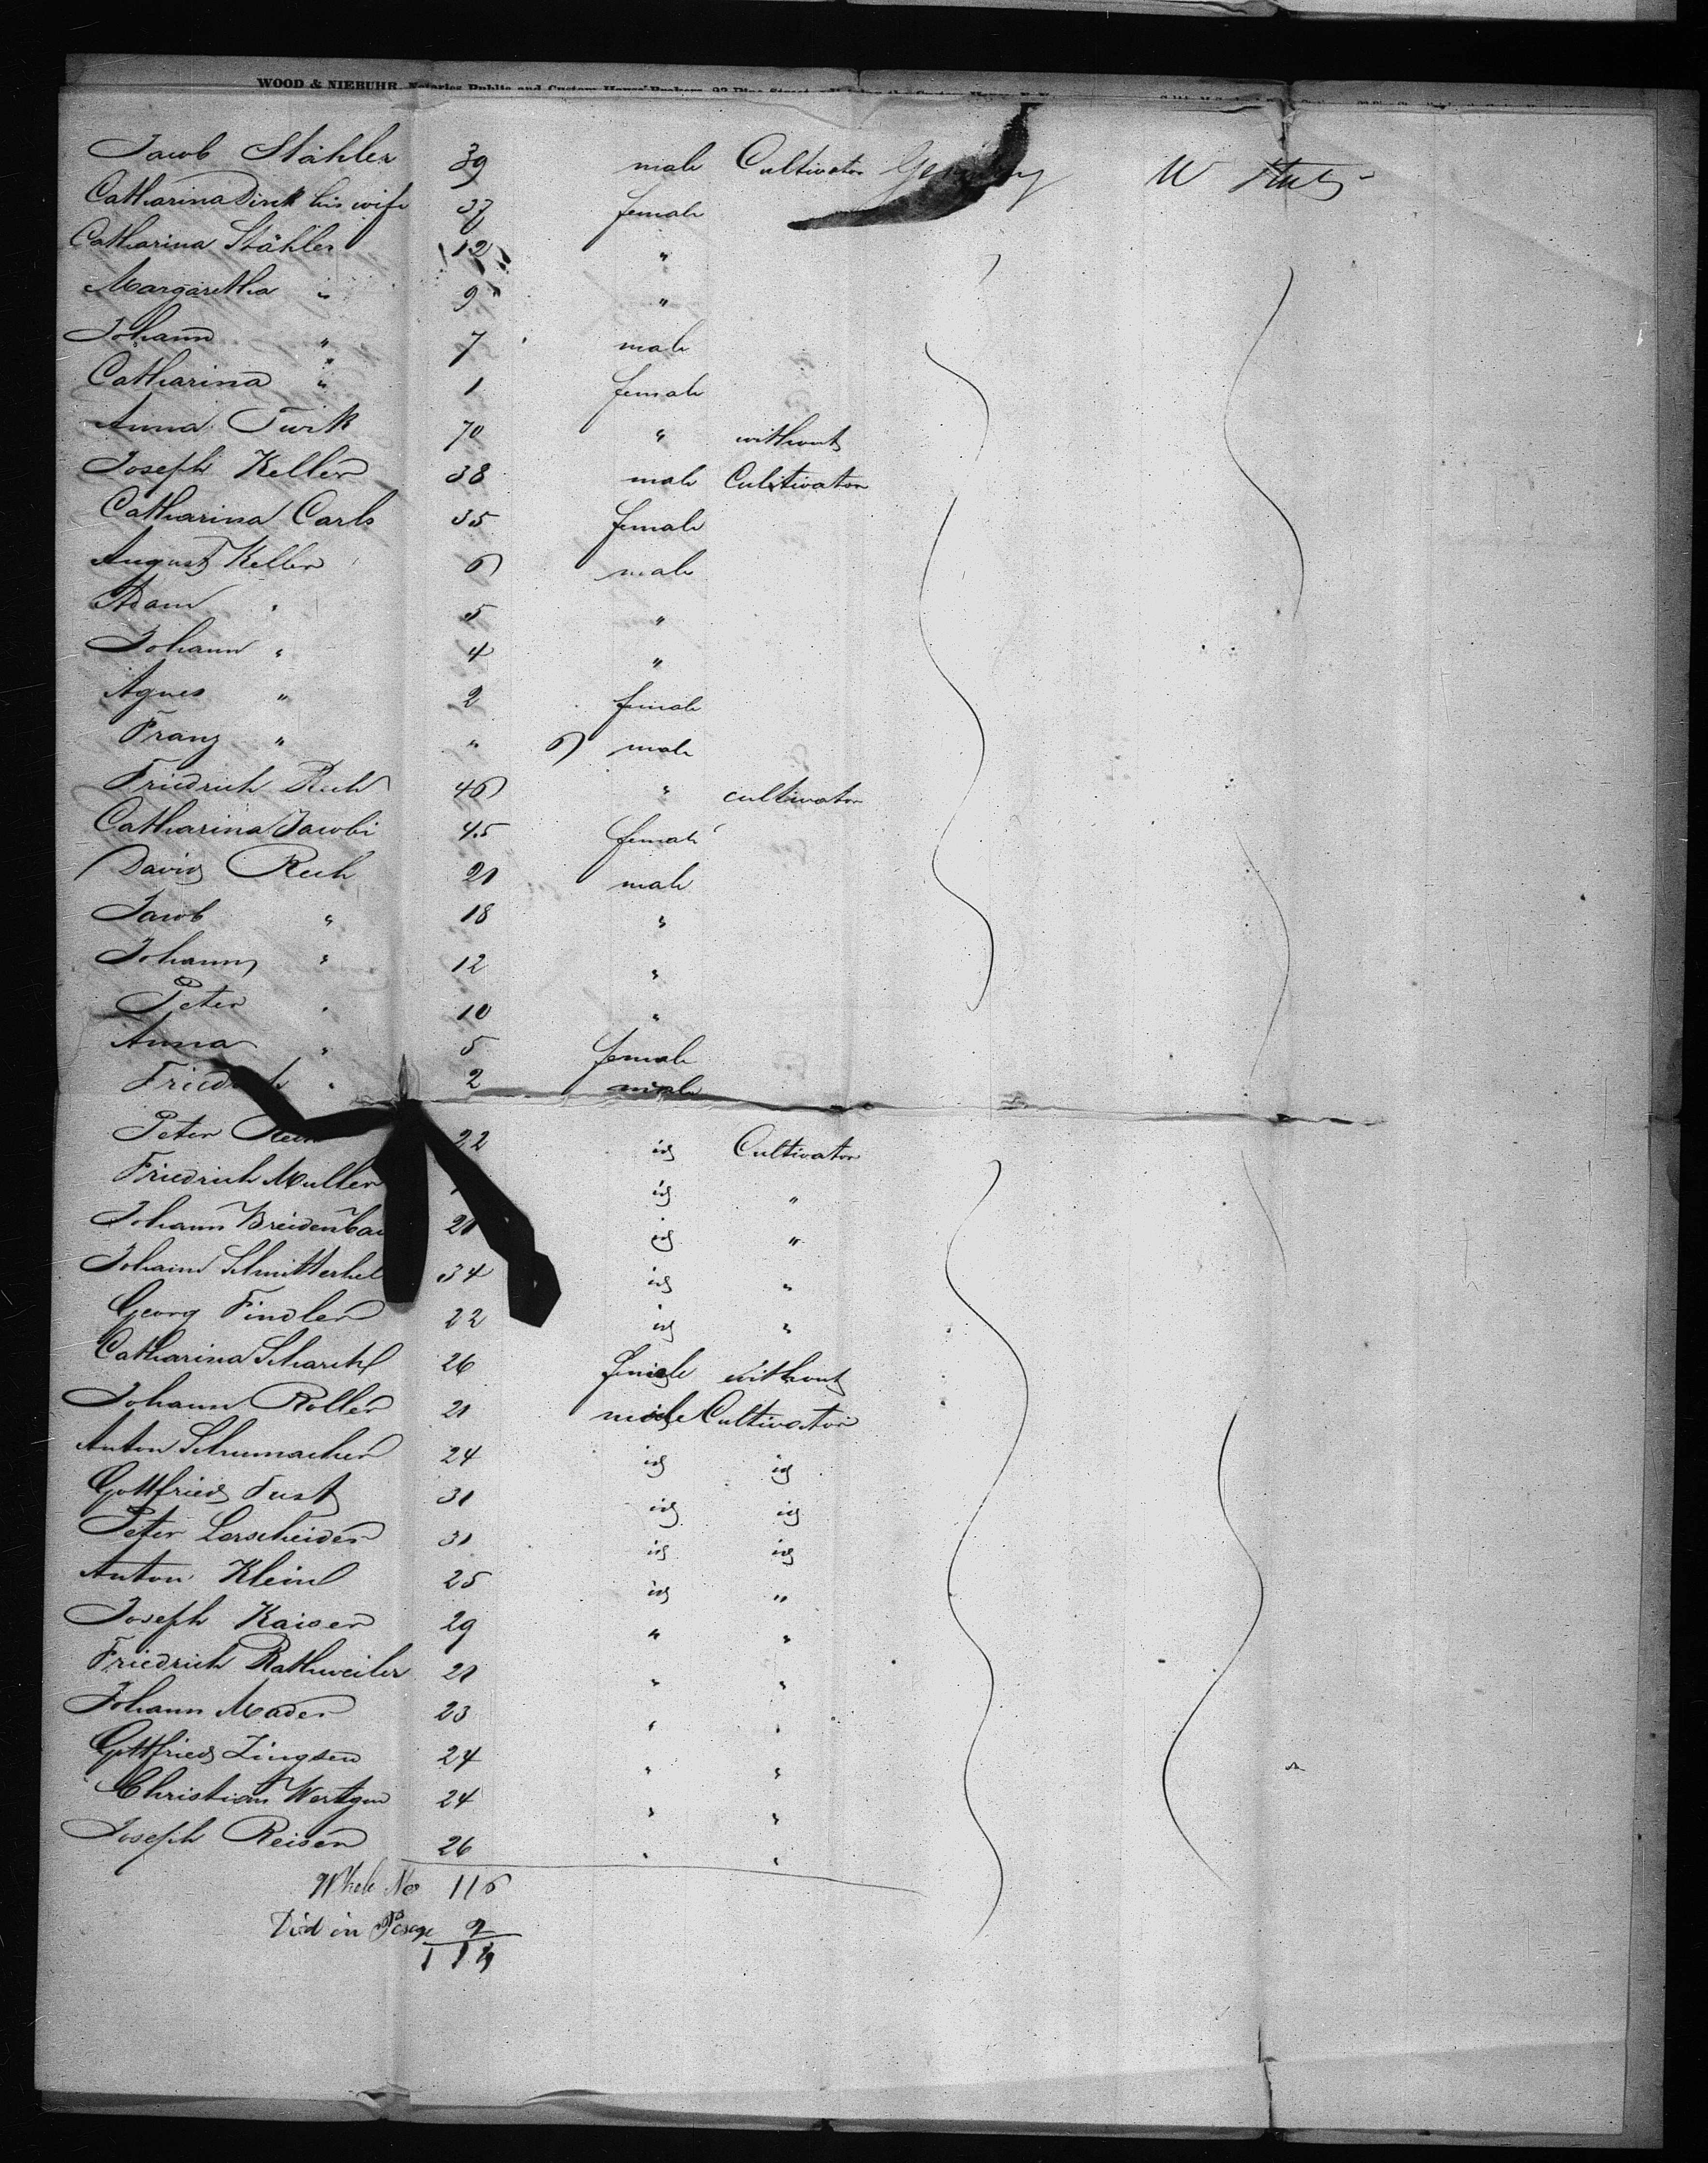 WOOD & NIEBUHR, Notaries Public and Custom House Brokers, 22 Pine Street
Jacob Stähler 39 male Cultivator Germany U States
Catharina Dirck his wife 37 female
Catharina Stähler 12 "
Margaretha " 9 "
Johann " 7 male
Catharina " 1 female
Anna Turk 70 " without
Joseph Keller 38 male Cultivator
Catharina Carls 35 female
August Keller 6 male
Adam " 5 "
Johann " 4 "
Agnes " 2 female
Franz " " 6 male
Friedrich Rech 46 " cultivator
Catharina Jacobi 45 female
David Rech 21 male
Jacob " 18 "
Johann " 12 "
Peter " 10 "
Anna " 5 female
Friedrich " 2 male
Peter Rech 22 id Cultivator
Friedrich Muller id "
Johann Breidenba 21 id "
Johann 34 id "
Georg Findler 22 id "
Catharina 26 female without
Johann Roller 21 male Cultivator
Anton Schumacher 24 id id
Gottfried Fust 31 id id
Peter Lorscheider 31 id id
Anton Klein 25 id "
Joseph Kaiser 29 " "
Friedrich Rathweiler 21 " "
Johann Mader 23 " "
Gottfried Lingsen 24 " "
Christian Wertgen 24 " "
Joseph Reisen 26 " "
Whole No 116
Died in Passage 2
114